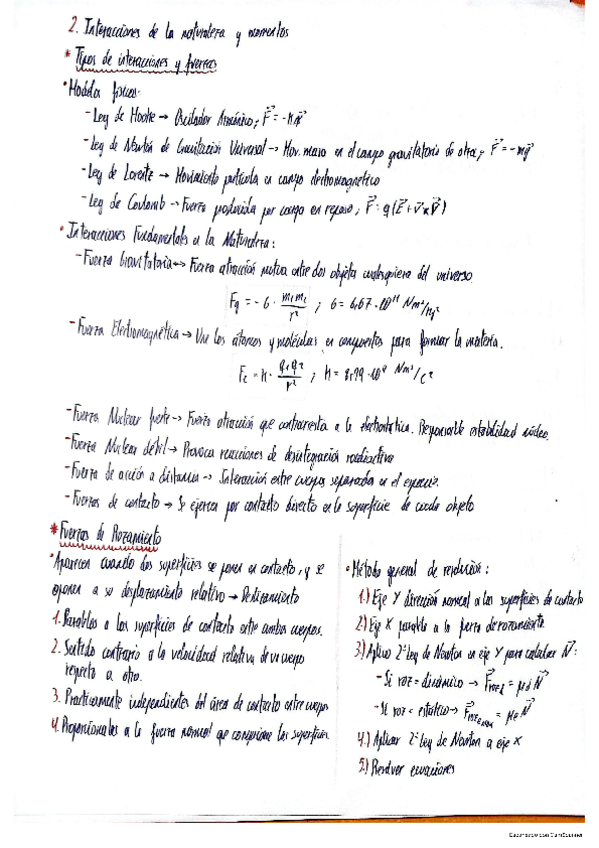 2. Interacciones de la naturaleza y momentos
* Tipos de interacciones y fuerzas
• Modelos físicos:
- Ley de Hooke → Oscilador Armónico; F = -Kx
- Ley de Newton de Gravitación Universal → Mov. masa en el campo gravitatorio de otra; F = -mg
- Ley de Lorentz → Movimiento partícula en campo electromagnético
- Ley de Coulomb → Fuerza producida por carga en reposo; F = q(E + v x B)
• Interacciones Fundamentales en la Naturaleza:
- Fuerza Gravitatoria → Fuerza atracción mutua entre dos objetos cualesquiera del universo.
Fg = - G · m₁m₂/r² ; G = 6,67 · 10⁻¹¹ Nm²/kg²
- Fuerza Electromagnética → Une los átomos y moléculas en compuestos para formar la materia.
Fe = K · q₁q₂/r² ; K = 8,99 · 10⁹ Nm²/C²
- Fuerza Nuclear fuerte → Fuerza atracción que contrarresta a la electrostática. Responsable estabilidad núcleo.
- Fuerza Nuclear débil → Provoca reacciones de desintegración radiactiva
- Fuerza de acción a distancia → Interacción entre cuerpos separados en el espacio.
- Fuerzas de contacto → Se ejercen por contacto directo en la superficie de cada objeto
* Fuerzas de Rozamiento
• Aparecen cuando dos superficies se ponen en contacto, y se
oponen a su desplazamiento relativo → Deslizamiento
1. Paralelas a las superficies de contacto entre ambos cuerpos.
2. Sentido contrario a la velocidad relativa de un cuerpo
respecto a otro.
3. Practicamente independientes del área de contacto entre cuerpos
4. Proporcionales a la fuerza normal que comprime las superficies.
• Método general de resolución:
1.) Eje Y dirección normal a las superficies de contacto
2.) Eje X paralelo a la fuerza de rozamiento.
3.) Aplico 2ª Ley de Newton en eje Y para calcular N:
- Si roz = dinámico → F = μd N
- Si roz = estático → F = μe N
4.) Aplicar 2ª Ley de Newton a eje X
5.) Resolver ecuaciones
Escaneado con CamScanner